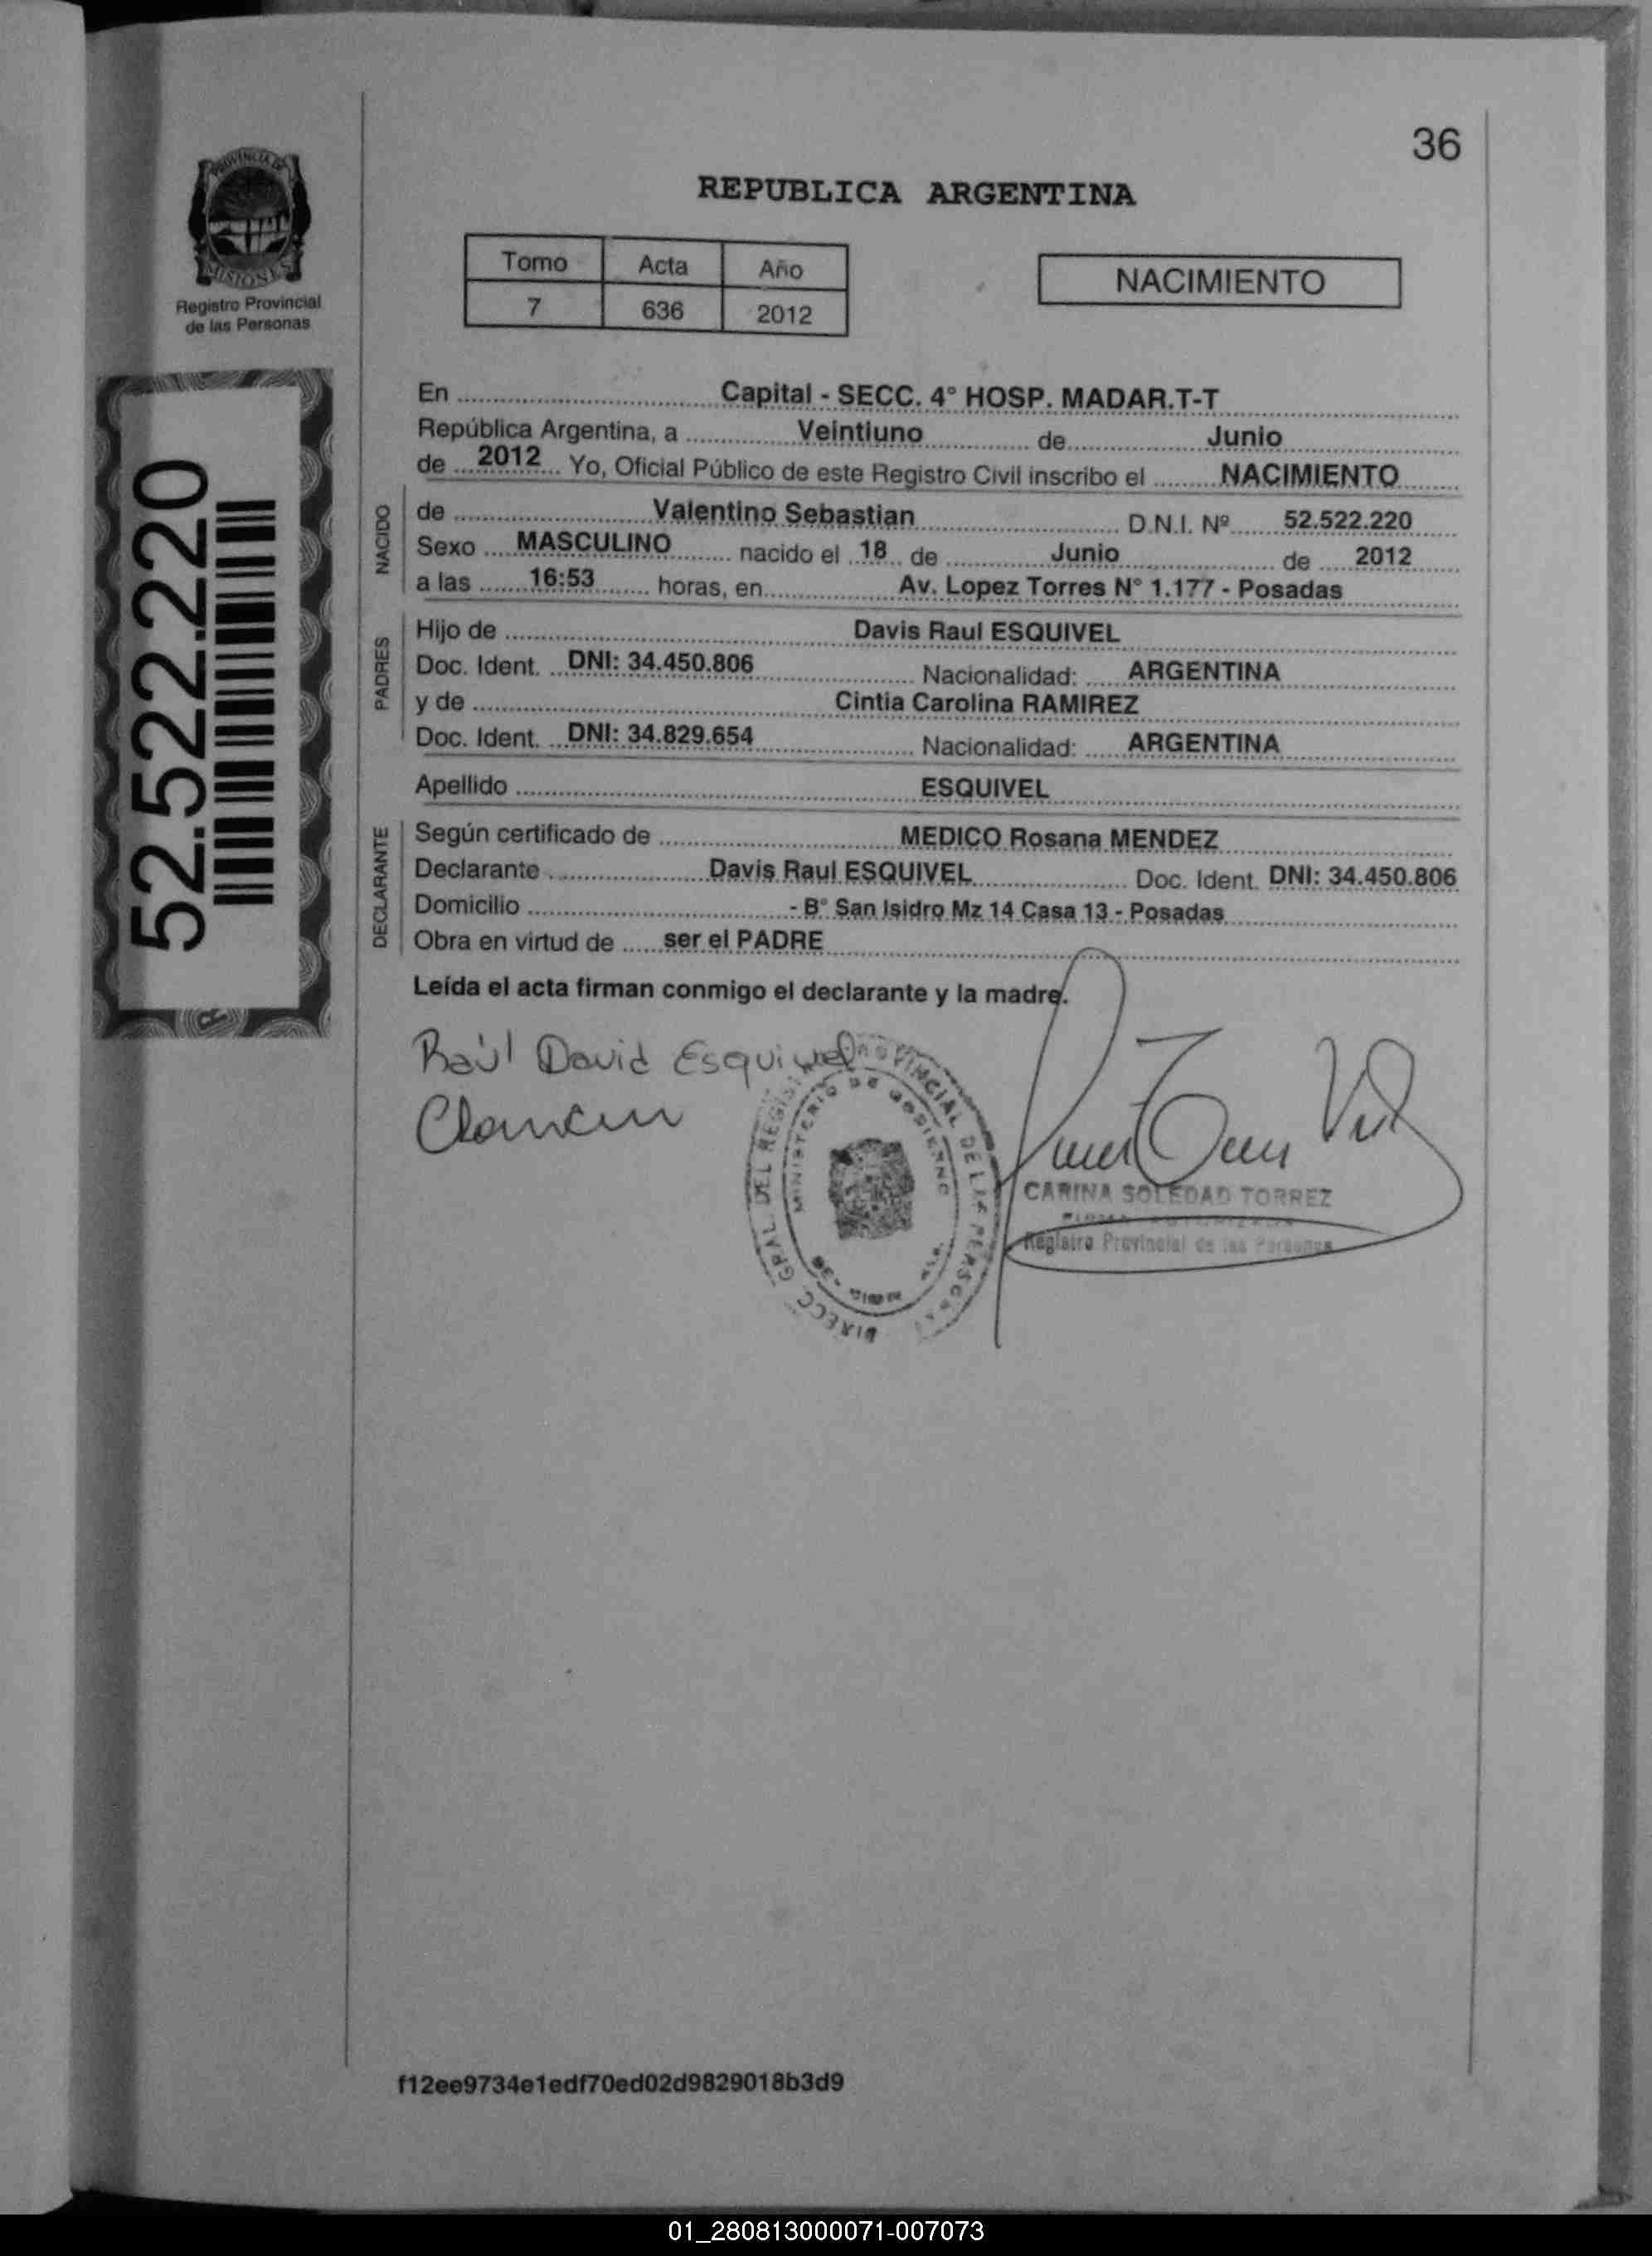 36
PROVINCIA DE
MISIONES
Registro Provincial
de las Personas
REPUBLICA ARGENTINA
Tomo Acta Año
7 636 2012
NACIMIENTO
52.522.220
En Capital - SECC. 4° HOSP. MADAR.T-T
República Argentina, a Veintiuno de Junio
de 2012 Yo, Oficial Público de este Registro Civil inscribo el NACIMIENTO
NACIDO
de Valentino Sebastian D.N.I. Nº 52.522.220
Sexo MASCULINO nacido el 18 de Junio de 2012
a las 16:53 horas, en Av. Lopez Torres N° 1.177 - Posadas
PADRES
Hijo de Davis Raul ESQUIVEL
Doc. Ident. DNI: 34.450.806 Nacionalidad: ARGENTINA
y de Cintia Carolina RAMIREZ
Doc. Ident. DNI: 34.829.654 Nacionalidad: ARGENTINA
Apellido ESQUIVEL
DECLARANTE
Según certificado de MEDICO Rosana MENDEZ
Declarante Davis Raul ESQUIVEL Doc. Ident. DNI: 34.450.806
Domicilio - B° San Isidro Mz 14 Casa 13 - Posadas
Obra en virtud de ser el PADRE
Leída el acta firman conmigo el declarante y la madre.
Raúl David Esquivel
DIRECC. GRAL. DEL REGISTRO PROVINCIAL DE LAS PERSONAS
MINISTERIO DE GOBIERNO
CARINA SOLEDAD TORREZ
Registro Provincial de las Personas
f12ee9734e1edf70ed02d9829018b3d9
01_280813000071-007073